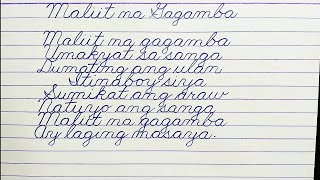 Maliit na Gagamba
Maliit na gagamba
Umakyat sa sanga
Dumating ang ulan
Itinaboy siya
Sumikat ang araw
Natuyo ang sanga
Maliit na gagamba
Ay laging masaya.